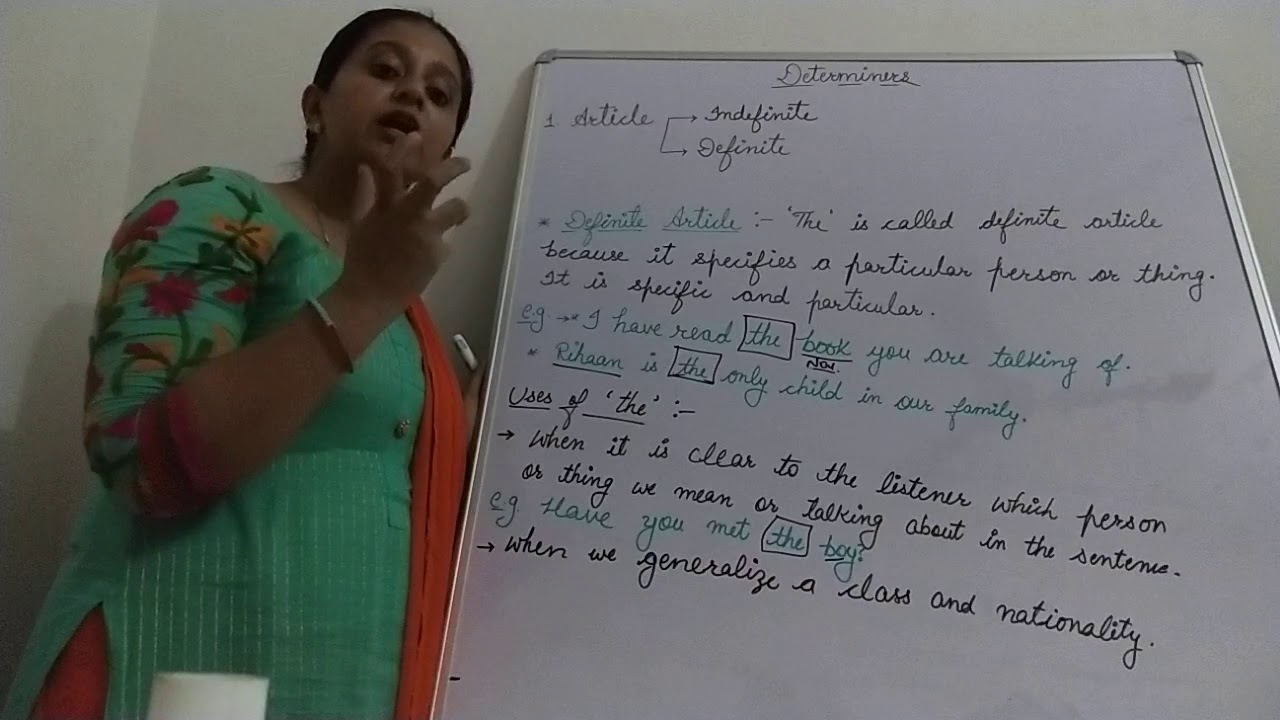 Determiners
1 Article → Indefinite
→ Definite
* Definite Article :- 'The' is called definite article
because it specifies a particular person or thing.
It is specific and particular.
e.g. →* I have read the book you are talking of.
Nou.
* Rihaan is the only child in our family.
Uses of 'the' :-
→ When it is clear to the listener which person
or thing we mean or talking about in the sentence.
e.g. Have you met the boy?
→ When we generalize a class and nationality.